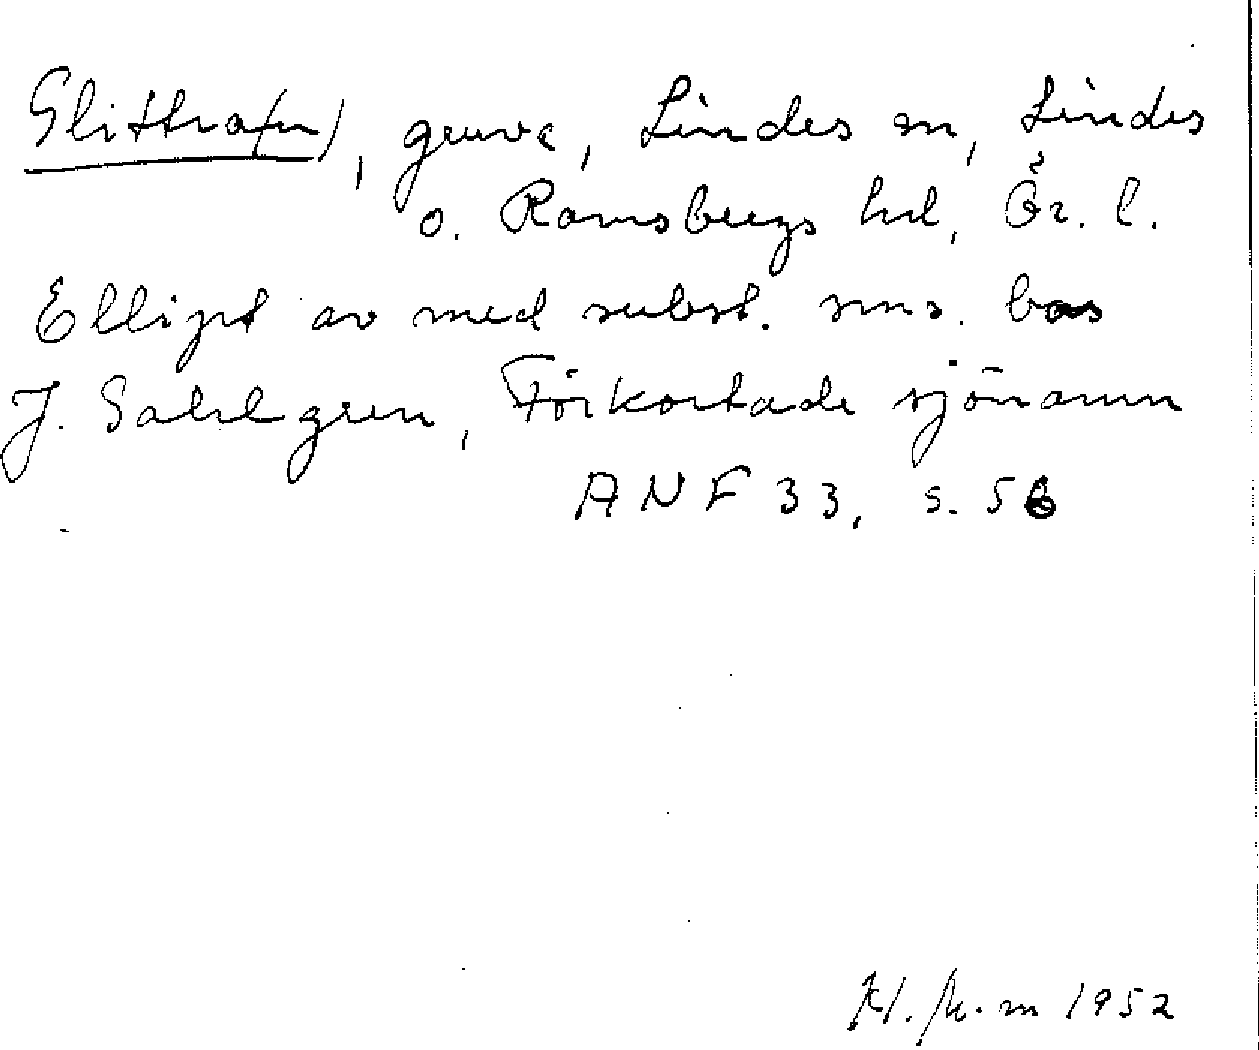 Glittra(n), gruva, Lindes sn, Lindes
o. Ramsbergs hd, Ör. l.
Ellipt av med subst. sms. bas
J. Sahlgren, Förkortade sjönamn
ANF 33, s. 56
1952